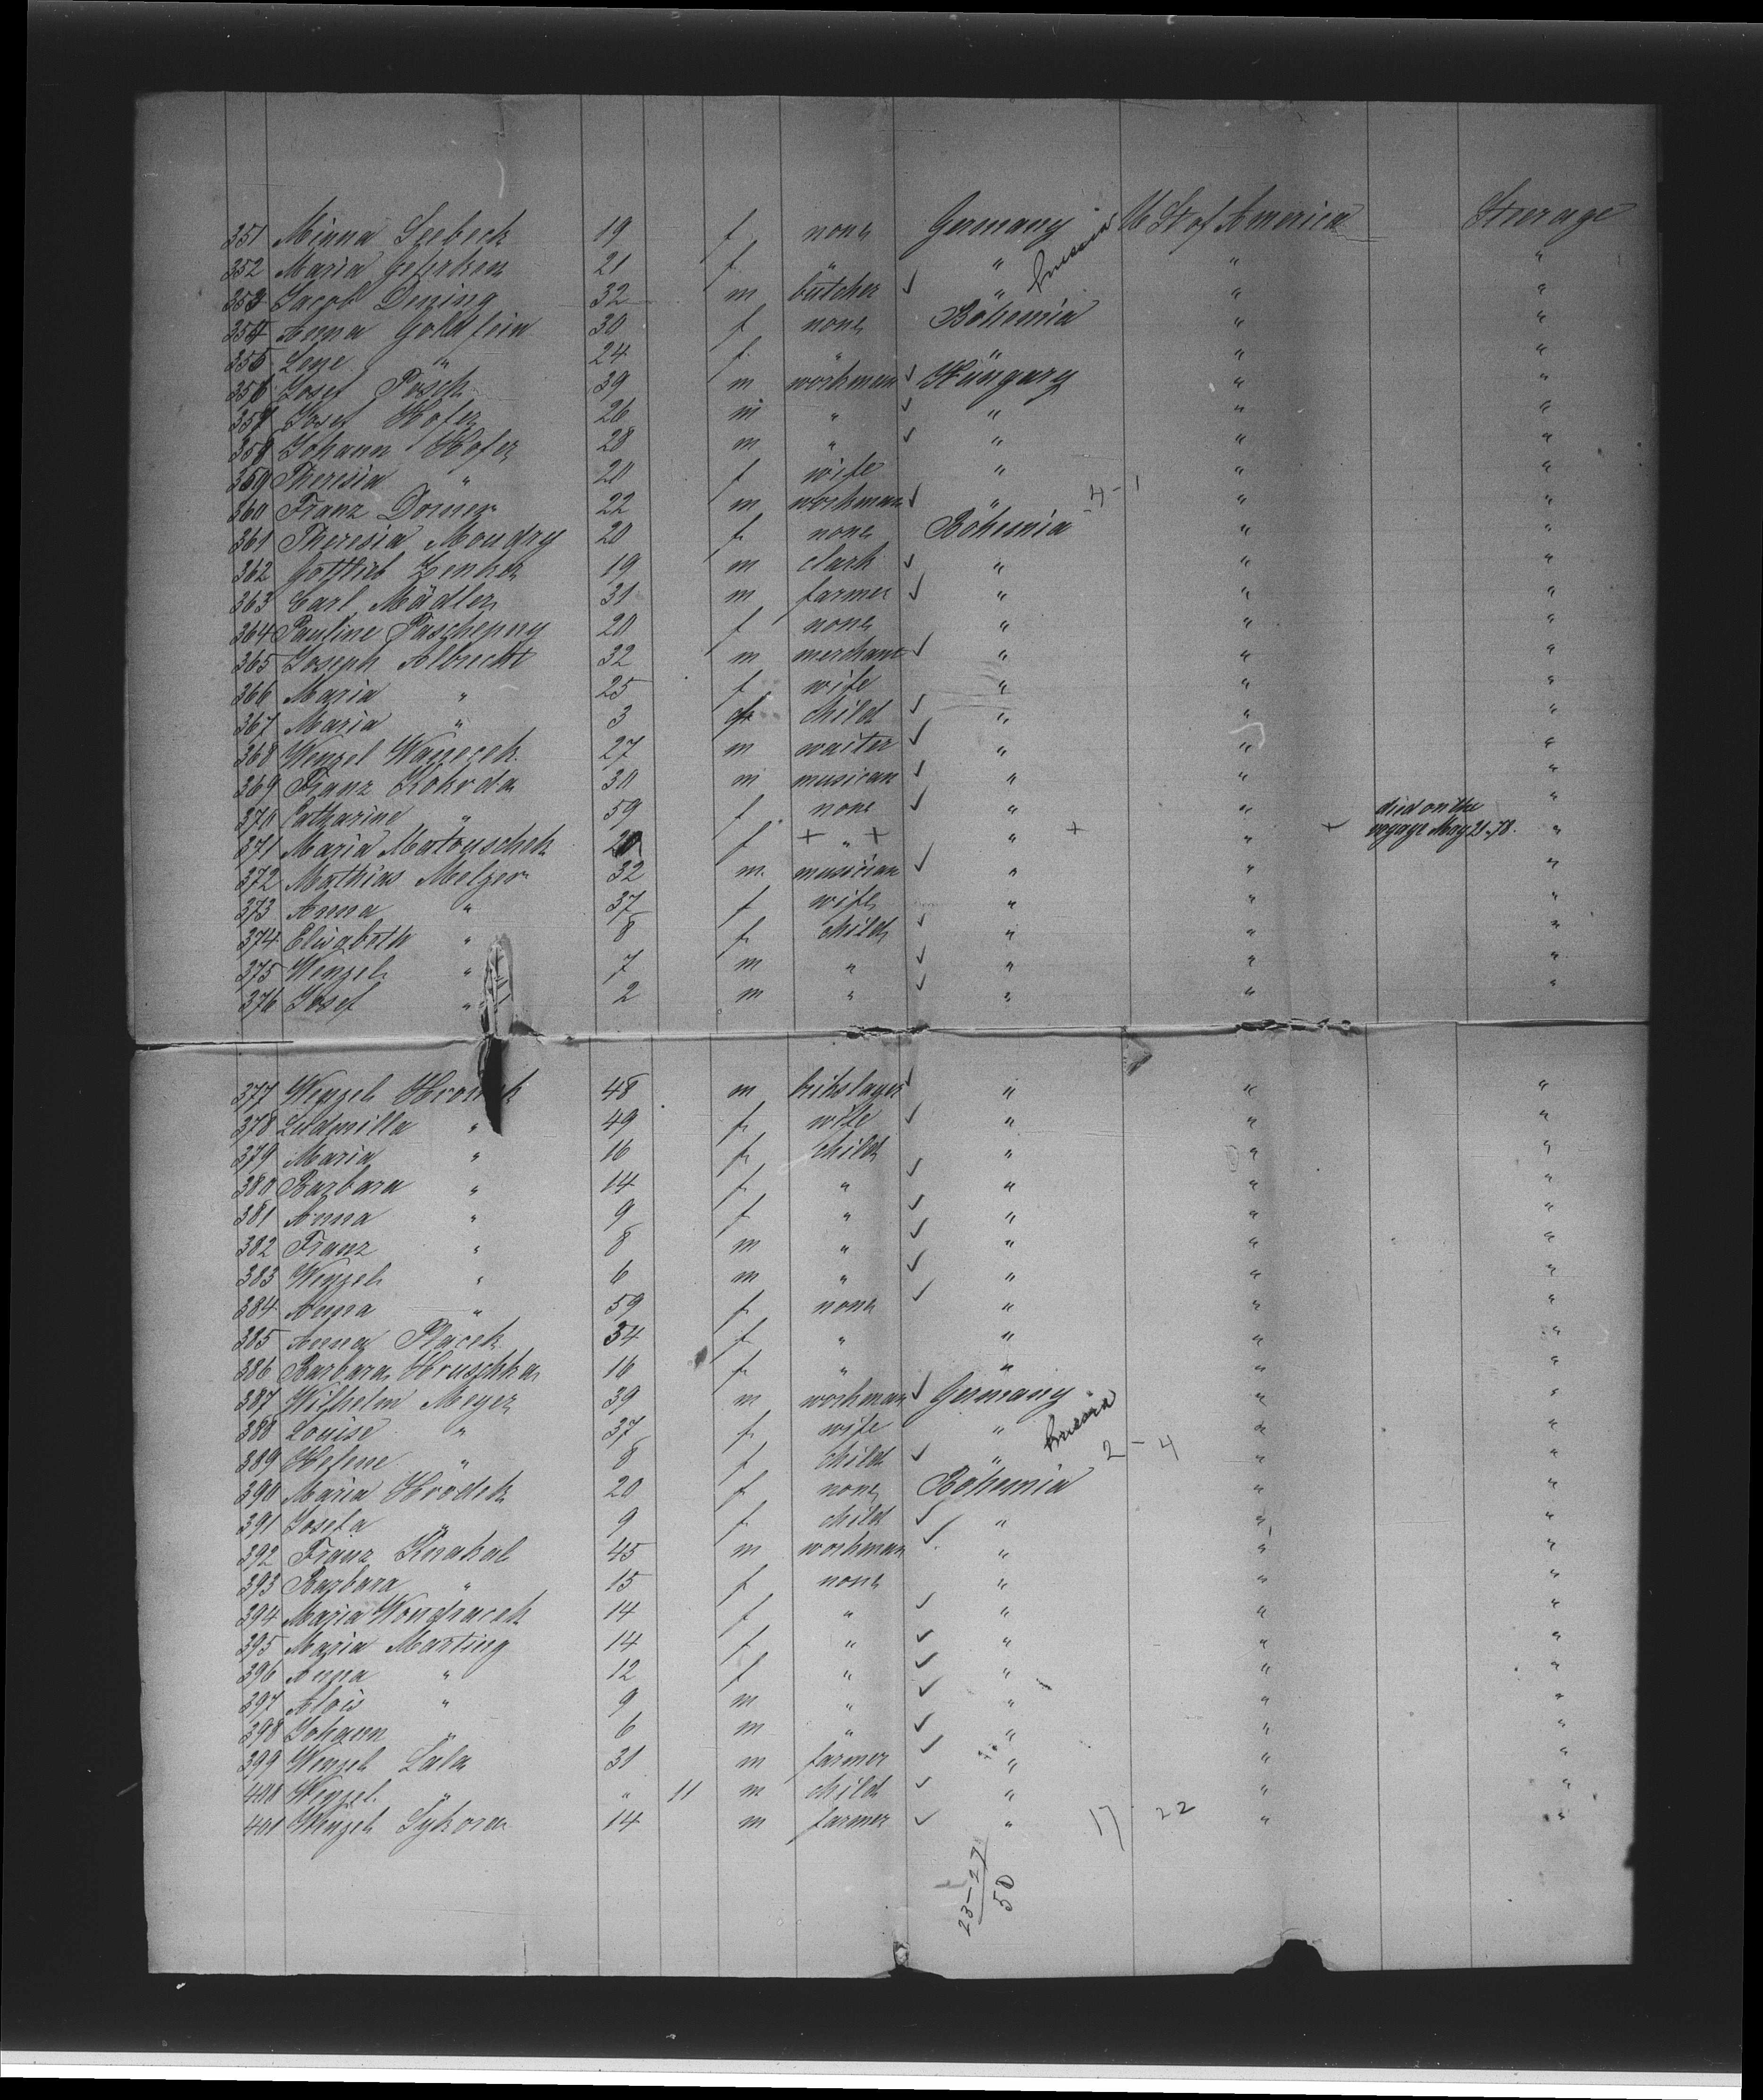 351 Minna Seebeck 19 f none Germany U St of America Steerage
352 Maria Geferken 21 f " " Prussia " "
353 Jacob Dening 32 m bütcher ✓ " " "
354 Anna Goldstein 30 f none Böhemia " "
355 Lene " 24 f " " " "
356 Josef Pösch 39 m workman ✓ Hüngary " "
357 Josef Hofer 26 m " ✓ " " "
358 Johann Hofer 28 m " ✓ " " "
359 Theresia " 20 f wife " " "
360 Franz Dorner 22 m workman ✓ " 4-1 " "
361 Theresia Moudry 20 f none Böhemia " "
362 Gottlieb Zenker 19 m clark ✓ " " "
363 Carl Mädler 31 m farmer ✓ " " "
364 Pauline Paschepny 20 f none " " "
365 Joseph Albrecht 32 m merchant ✓ " " "
366 Maria " 25 f wife " " "
367 Maria " 3 f child ✓ " " "
368 Wenzel Wanecek 27 m waiter ✓ " " "
369 Franz Kohorda 30 m musican ✓ " " "
370 Catharine " 59 f none ✓ " " "
371 Maria Matouschek f + " + " + " + died on the voyage May 21-78. "
372 Mathias Melzer 32 m musician ✓ " " "
373 Anna " 37 f wife " " "
374 Elisabeth " 8 f child ✓ " " "
375 Wenzel " 7 m " ✓ " " "
376 Josef " 2 m " ✓ " " "
377 Wenzel 48 m brikslayer ✓ " " "
378 Ludmilla " 49 f wife ✓ " " "
379 Maria " 16 f child " " "
380 Barbara " 14 f " ✓ " " "
381 Anna " 9 f " ✓ " " "
382 Franz " 8 m " ✓ " " "
383 Wenzel " 6 m " ✓ " " "
384 Anna " 59 f none ✓ " " "
385 Anna Placek 54 f " " " "
386 Barbara Hruschka 16 f " " " "
387 Wilhelm Meyer 39 m workman ✓ Germany " "
388 Louise " 37 f wife " Prussia " "
389 Helene " 8 f child ✓ " 2-4 " "
390 Maria Hrodek 20 f none Böhemia " "
391 Josefa " 9 f child ✓ " " "
392 Franz Knakal 45 m workman ✓ " " "
393 Barbara " 15 f none " " "
394 Maria Wondracek 14 f " ✓ " " "
395 Maria Marting 14 f " ✓ " " "
396 Anna " 12 f " ✓ " " "
397 Alois " 9 m " ✓ " " "
398 Johann " 6 m " ✓ " " "
399 Wenzel Lala 31 m farmer ✓ " " "
400 Wenzel " " 11 m child ✓ " " "
401 Wenzel Sykora 14 m farmer ✓ " 17 22 " "
23-27
50